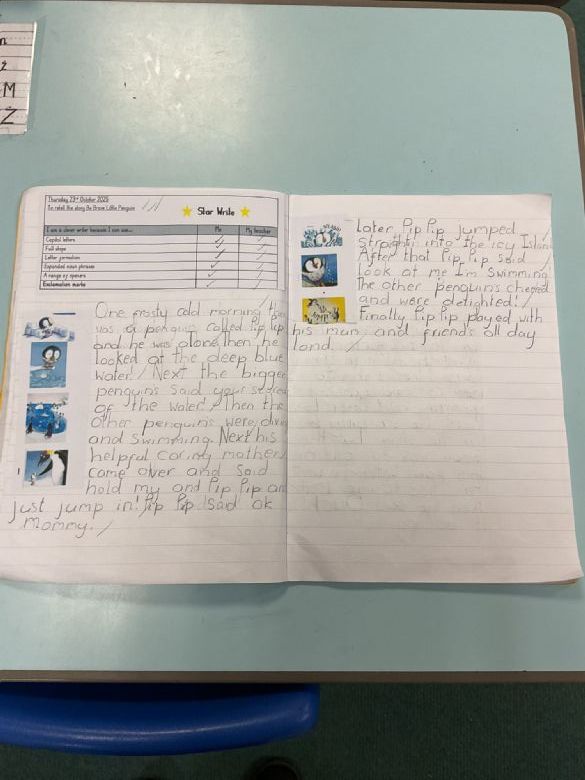 M
Z
Thursday 23rd October 2025
Star Write
I am a clever writer because I can use...
Me
My teacher
Capital letters
Full stops
Letter formation
Expanded noun phrases
A range of openers
Exclamation marks
One frosty cold morning
was a penguin called Pip Pip
and he was alone then he
looked at the deep blue
water! Next the bigger
penguins said your scared
of the water! Then the
other penguins were
and swimming. Next his
helpful caring mother
came over and said
hold my and Pip Pip
just jump in! Pip Pip said ok
mommy.
Later Pip Pip jumped
straight into the icy
After that Pip Pip said
look at me I'm swimming
The other penguins cheered
and were delighted!
Finally Pip Pip played with
his mum and friends all day
land.